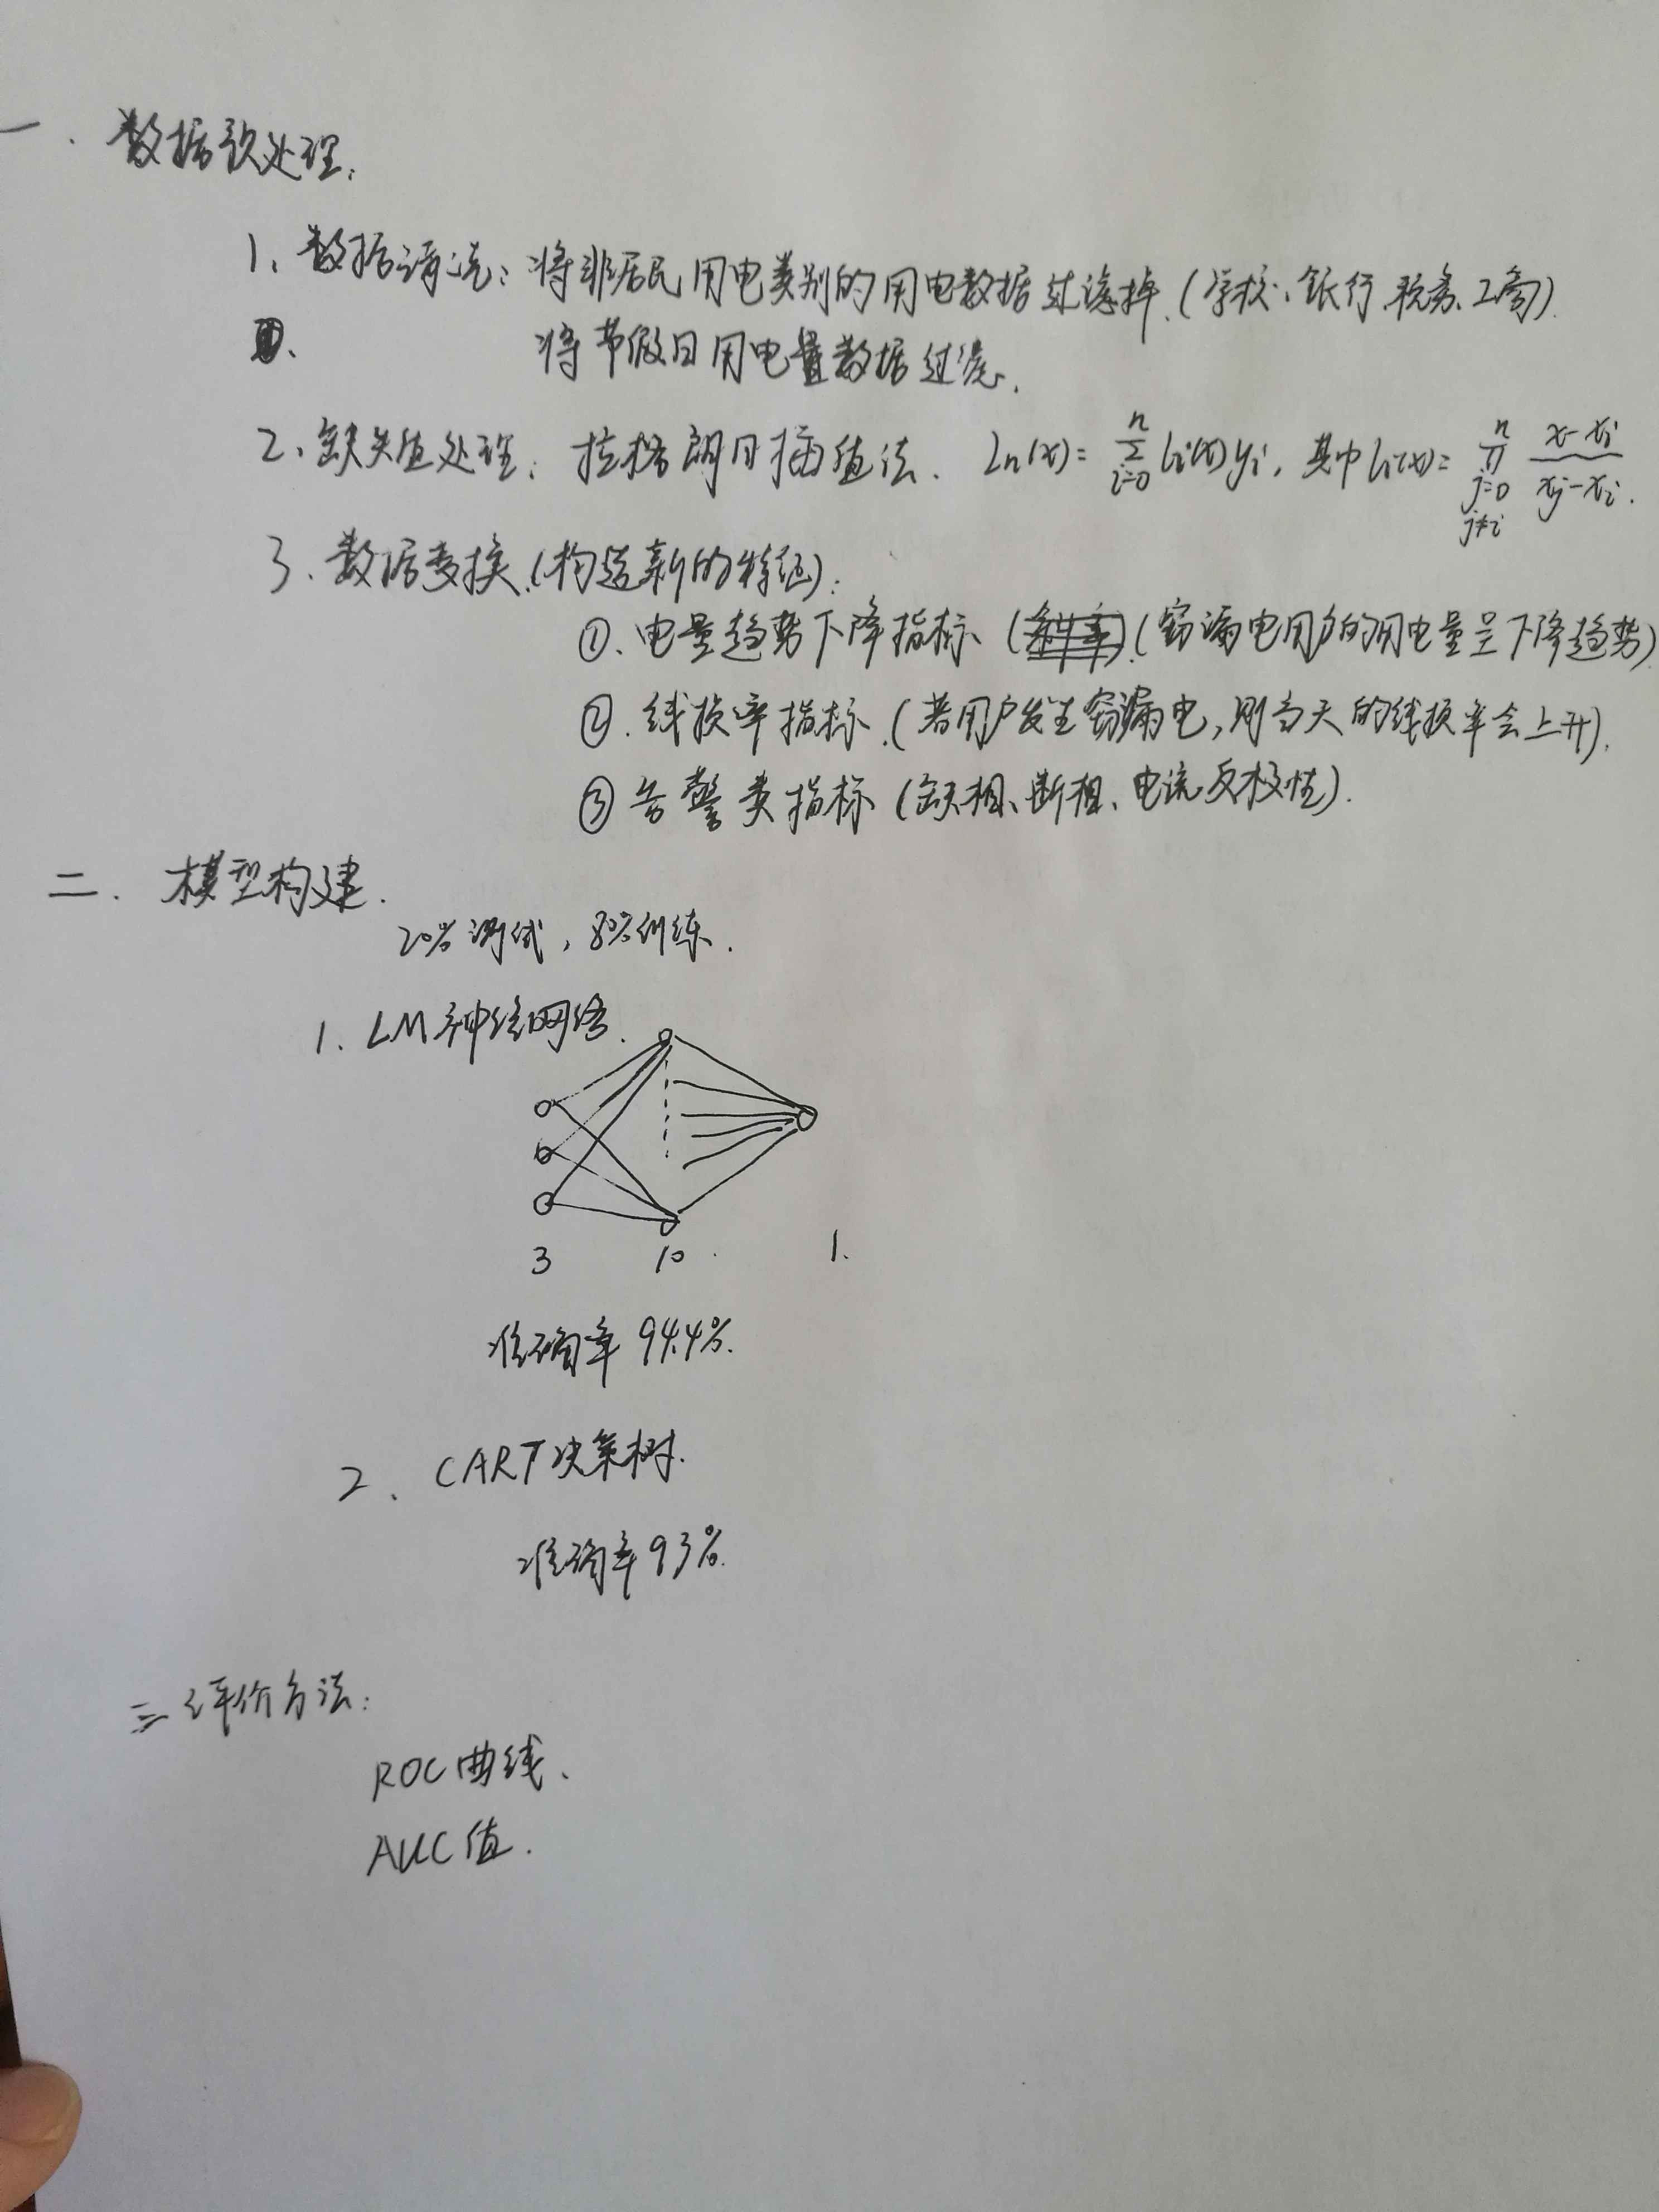 一、数据预处理:
1、数据清洗:将非居民用电类别的用电数据过滤掉.(学校、银行、税务、工商).
将节假日用电量数据过滤.
2、缺失值处理:拉格朗日插值法. Ln(x)=∑_{i=0}^{n} li(x)yi, 其中 li(x)=∏_{j=0, j≠i}^{n} (x-xj)/(xj-xi).
3、数据变换.(构造新的特征):
①、电量趋势下降指标 (窃漏电用户的用电量呈下降趋势)
②.线损率指标.(若用户发生窃漏电,则当天的线损率会上升).
③告警类指标(缺相、断相、电流反极性).
二.模型构建.
20%测试,80%训练.
1.LM神经网络.
3 10 1.
准确率 94.4%.
2、CART决策树.
准确率93%.
三 评价方法:
ROC曲线、
AUC值.